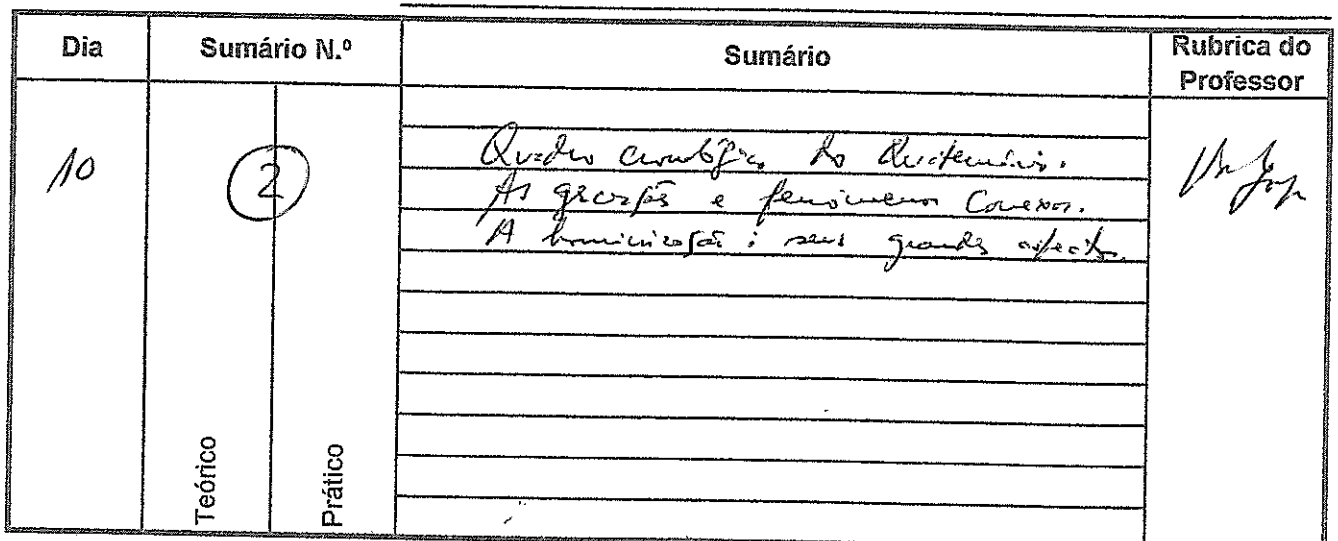 Dia Sumário N.º Sumário Rubrica do Professor
10 2 Quadro cronológico do Quaternário.
As glaciações e fenómenos conexos.
A hominização: seus grandes aspectos.
Teórico Prático